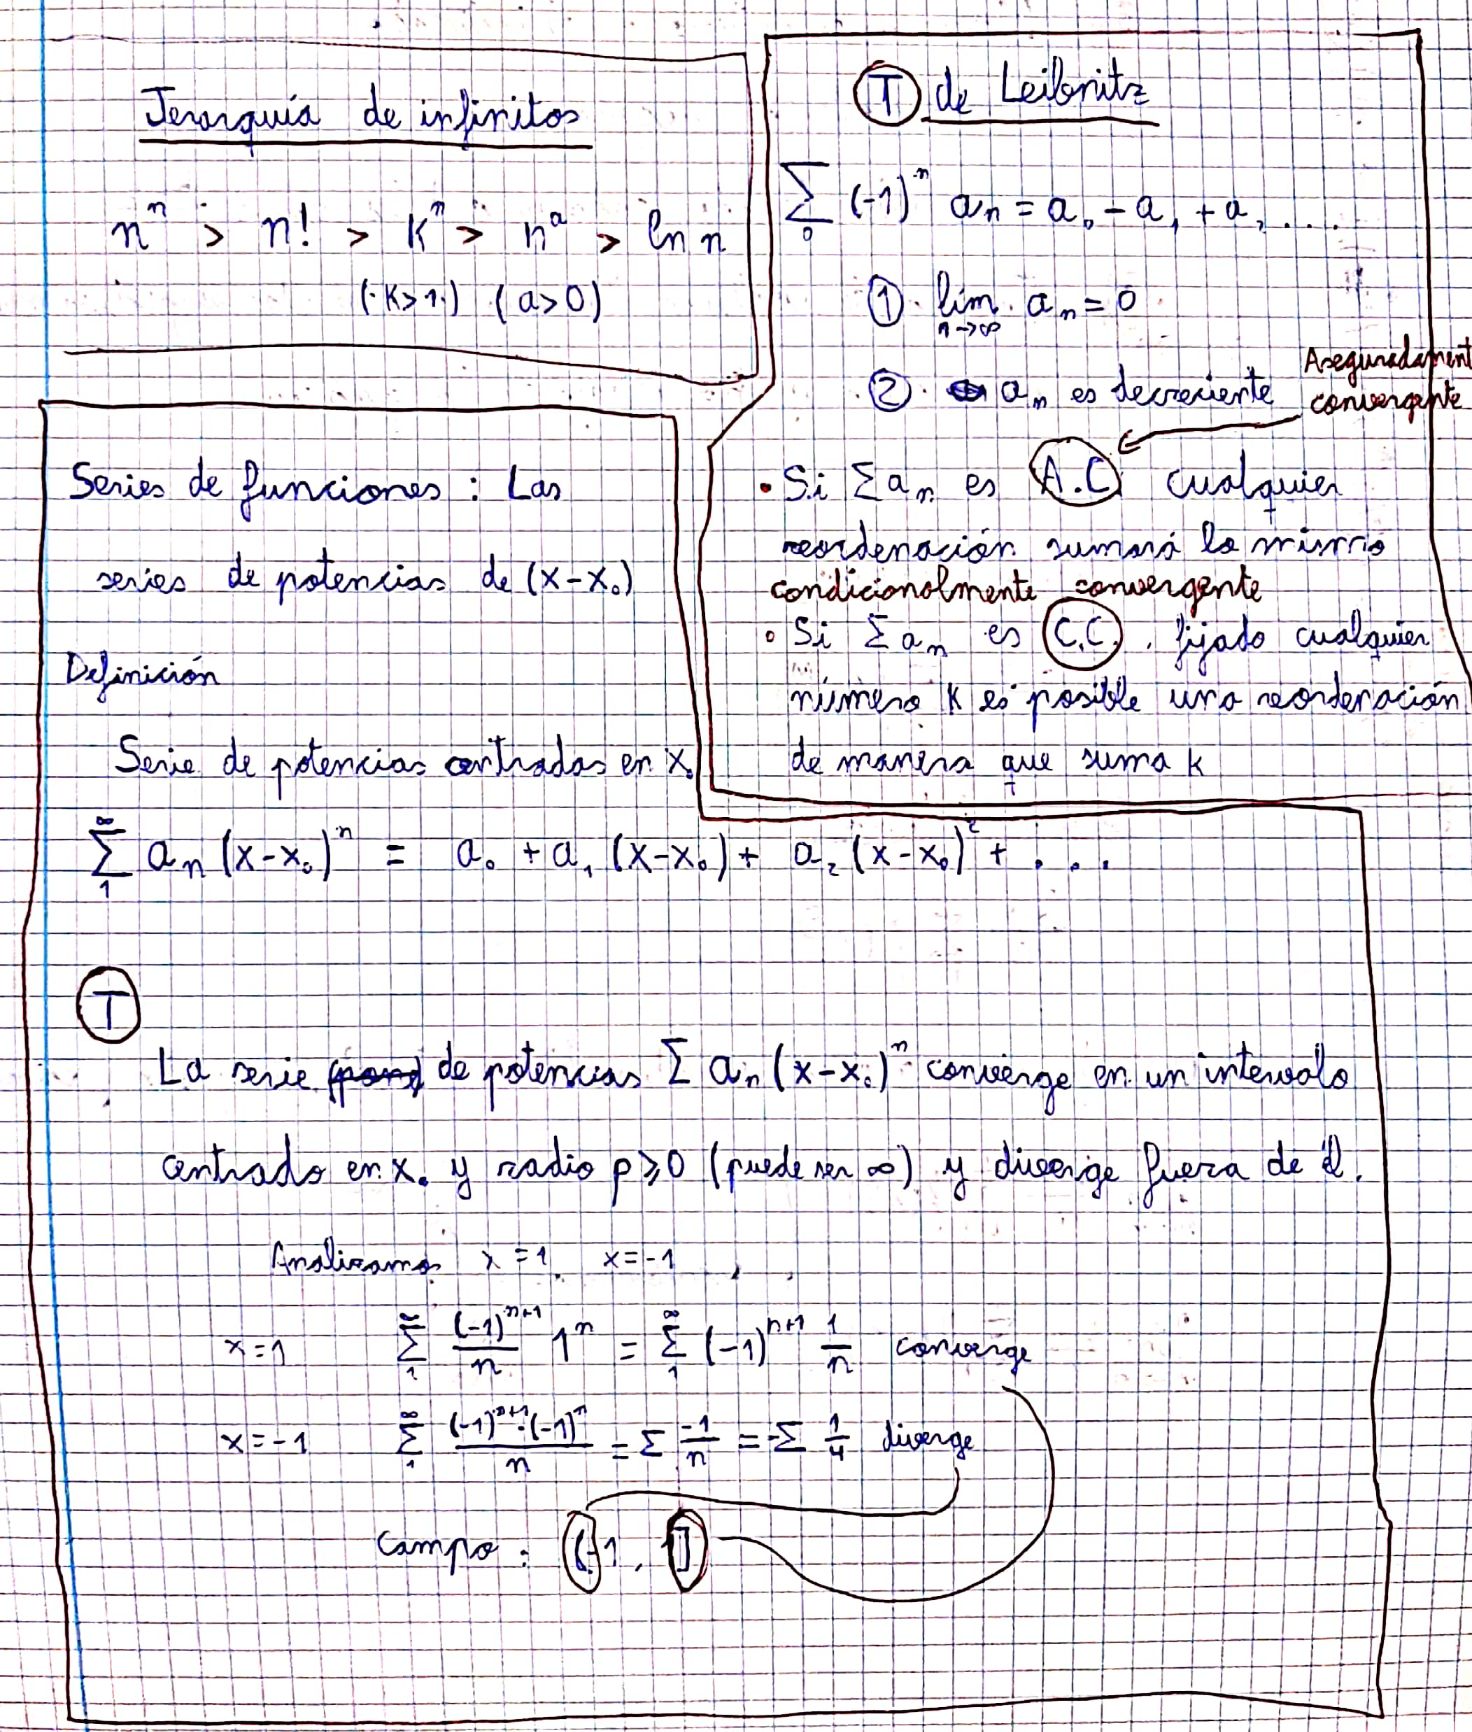 Jerarquía de infinitos
n^n > n! > k^n > n^a > ln n
(k>1) (a>0)
T de Leibnitz
∑_0 (-1)^n a_n = a_0 - a_1 + a_2 ....
① lim_{n→∞} a_n = 0
② a_n es decreciente
Aseguradament
convergente
• Si ∑ a_n es A.C. cualquier
reordenación sumará lo mismo
condicionalmente convergente
• Si ∑ a_n es C.C., fijado cualquier
número K es posible una reordenación
de manera que suma K
Series de funciones : Las
series de potencias de (x-x_0)
Definición
Serie de potencias centradas en x_0
∑_1^∞ a_n (x-x_0)^n = a_0 + a_1 (x-x_0) + a_2 (x-x_0)^2 + ....
T
La serie de potencias ∑ a_n (x-x_0)^n converge en un intervalo
centrado en x_0 y radio ρ ≥ 0 (puede ser ∞) y diverge fuera de él.
Analizamos x=1 x=-1
x=1 ∑_1^∞ (-1)^{n+1}/n 1^n = ∑_1^∞ (-1)^{n+1} 1/n converge
x=-1 ∑_1^∞ (-1)^{n+1}·(-1)^n/n = ∑ -1/n = -∑ 1/4 diverge
Campo : (-1, 1]